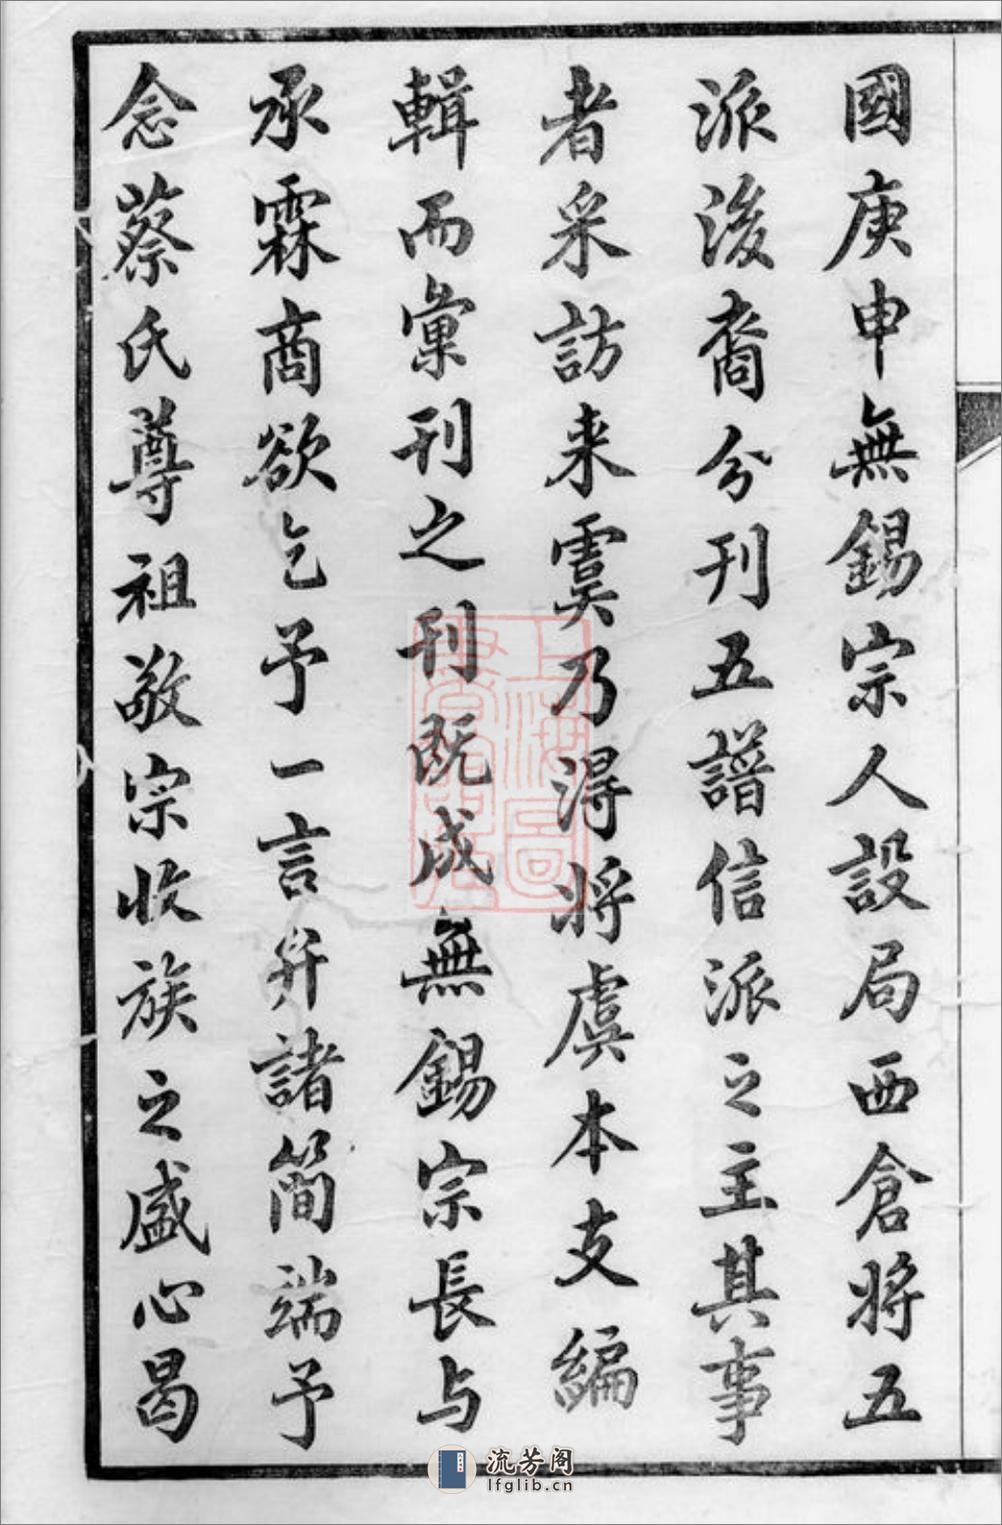 國庚申無錫宗人設局西倉將五
派後裔分刊五譜信派之主其事
者采訪来虞乃得將虞本支編
輯而彙刊之刊既成無錫宗長与
承霖商欲乞予一言弁諸簡端予
念蔡氏尊祖敬宗收族之盛心曷
上海圖
書館藏
流芳阁
lfglib.cn